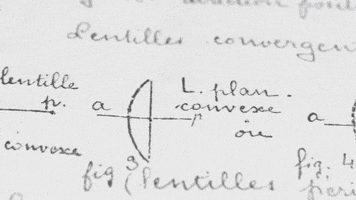 Lentilles convergen
lentille
p.
convexe
a
L. plan-
convexe
p
a
fig 3 (lentilles
fig. 4